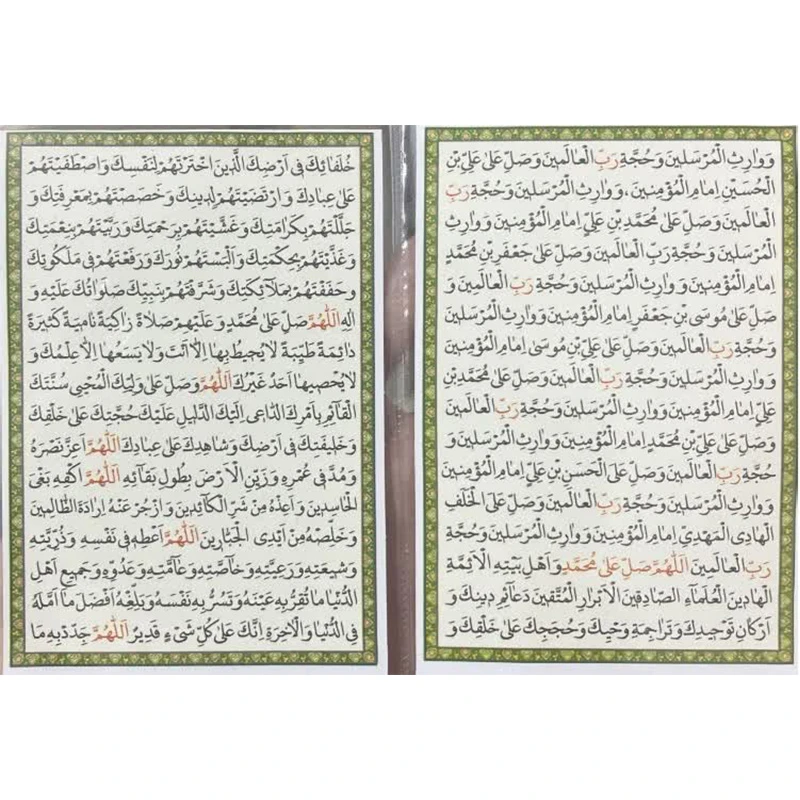 وَ وَارِثِ الْمُرْسَلينَ وَ حُجَّةِ رَبِّ الْعالَمينَ وَ صَلِّ عَلىٰ عَلِيِّ بْنِ
الْحُسَيْنِ اِمامِ الْمُؤْمِنينَ، وَ وارِثِ الْمُرْسَلينَ وَ حُجَّةِ رَبِّ
الْعالَمينَ وَ صَلِّ عَلىٰ مُحَمَّدِ بْنِ عَلِيٍّ اِمامِ الْمُؤْمِنينَ وَ وارِثِ
الْمُرْسَلينَ وَ حُجَّةِ رَبِّ الْعالَمينَ وَ صَلِّ عَلىٰ جَعْفَرِ بْنِ مُحَمَّدٍ
اِمامِ الْمُؤْمِنينَ وَ وارِثِ الْمُرْسَلينَ وَ حُجَّةِ رَبِّ الْعالَمينَ وَ
صَلِّ عَلىٰ مُوسَى بْنِ جَعْفَرٍ اِمامِ الْمُؤْمِنينَ وَ وارِثِ الْمُرْسَلينَ
وَ حُجَّةِ رَبِّ الْعالَمينَ وَ صَلِّ عَلىٰ عَلِيِّ بْنِ مُوسىٰ اِمامِ الْمُؤْمِنينَ
وَ وارِثِ الْمُرْسَلينَ وَ حُجَّةِ رَبِّ الْعالَمينَ وَ صَلِّ عَلىٰ مُحَمَّدِ بْنِ
عَلِيٍّ اِمامِ الْمُؤْمِنينَ وَ وارِثِ الْمُرْسَلينَ وَ حُجَّةِ رَبِّ الْعالَمينَ
وَ صَلِّ عَلىٰ عَلِيِّ بْنِ مُحَمَّدٍ اِمامِ الْمُؤْمِنينَ وَ وارِثِ الْمُرْسَلينَ وَ
حُجَّةِ رَبِّ الْعالَمينَ وَ صَلِّ عَلَى الْحَسَنِ بْنِ عَلِيٍّ اِمامِ الْمُؤْمِنينَ
وَ وارِثِ الْمُرْسَلينَ وَ حُجَّةِ رَبِّ الْعالَمينَ وَ صَلِّ عَلَى الْخَلَفِ
الْهادِى الْمَهْدِيِّ اِمامِ الْمُؤْمِنينَ وَ وارِثِ الْمُرْسَلينَ وَ حُجَّةِ
رَبِّ الْعالَمينَ اَللّٰهُمَّ صَلِّ عَلىٰ مُحَمَّدٍ وَ اَهْلِ بَيْتِهِ الْاَئِمَّةِ
الْهادينَ الْعُلَماءِ الصّادِقينَ الْاَبْرارِ الْمُتَّقينَ دَعائِمِ دينِكَ وَ
اَرْكانِ تَوْحيدِكَ وَ تَراجِمَةِ وَحْيِكَ وَ حُجَجِكَ عَلىٰ خَلْقِكَ وَ
خُلَفائِكَ فى اَرْضِكَ الَّذينَ اخْتَرْتَهُمْ لِنَفْسِكَ وَ اصْطَفَيْتَهُمْ
عَلىٰ عِبادِكَ وَ ارْتَضَيْتَهُمْ لِدينِكَ وَ خَصَصْتَهُمْ بِمَعْرِفَتِكَ وَ
جَلَّلْتَهُمْ بِكَرامَتِكَ وَ غَشَّيْتَهُمْ بِرَحْمَتِكَ وَ رَبَّيْتَهُمْ بِنِعْمَتِكَ
وَ غَذَّيْتَهُمْ بِحِكْمَتِكَ وَ اَلْبَسْتَهُمْ نُورَكَ وَ رَفَعْتَهُمْ فى مَلَكُوتِكَ
وَ حَفَفْتَهُمْ بِمَلآئِكَتِكَ وَ شَرَّفْتَهُمْ بِنَبِيِّكَ صَلَواتُكَ عَلَيْهِ وَ
الِهِ اَللّٰهُمَّ صَلِّ عَلىٰ مُحَمَّدٍ وَ عَلَيْهِمْ صَلاةً زاكِيَةً نامِيَةً كَثيرَةً
دائِمَةً طَيِّبَةً لا يُحيطُ بِها اِلاّ اَنْتَ وَ لا يَسَعُها اِلاّ عِلْمُكَ وَ
لا يُحْصيها اَحَدٌ غَيْرُكَ اَللّٰهُمَّ وَ صَلِّ عَلىٰ وَلِيِّكَ الْمُحْيى سُنَّتَكَ
الْقآئِمِ بِاَمْرِكَ الدّاعى اِلَيْكَ الدَّليلِ عَلَيْكَ حُجَّتِكَ عَلىٰ خَلْقِكَ
وَ خَليفَتِكَ فى اَرْضِكَ وَ شاهِدِكَ عَلىٰ عِبادِكَ اَللّٰهُمَّ اَعِزَّ نَصْرَهُ
وَ مُدَّ فى عُمْرِهِ وَ زَيِّنِ الْاَرْضَ بِطُولِ بَقآئِهِ اَللّٰهُمَّ اكْفِهِ بَغْىَ
الْحاسِدينَ وَ اَعِذْهُ مِنْ شَرِّ الْكآئِدينَ وَ ازْجُرْ عَنْهُ اِرادَةَ الظّالِمينَ
وَ خَلِّصْهُ مِنْ اَيْدِى الْجَبّارينَ اَللّٰهُمَّ اَعْطِهِ فى نَفْسِهِ وَ ذُرِّيَّتِهِ
وَ شيعَتِهِ وَ رَعِيَّتِهِ وَ خآصَّتِهِ وَ عآمَّتِهِ وَ عَدُوِّهِ وَ جَميعِ اَهْلِ
الدُّنْيا ما تُقِرُّ بِهِ عَيْنَهُ وَ تَسُرُّ بِهِ نَفْسَهُ وَ بَلِّغْهُ اَفْضَلَ ما اَمَّلَهُ
فِى الدُّنْيا وَ الْاخِرَةِ اِنَّكَ عَلىٰ كُلِّ شَىْءٍ قَديرٌ اَللّٰهُمَّ جَدِّدْ بِهِ مَا